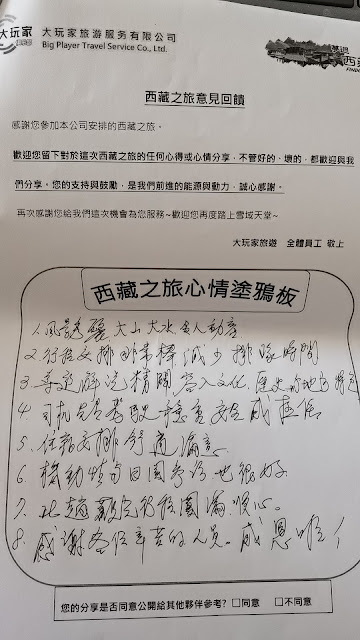 大玩家 大玩家旅遊服務有限公司
Big Player Travel Service Co., Ltd.
西藏之旅意見回饋
感謝您參加本公司安排的西藏之旅。
歡迎您留下對於這次西藏之旅的任何心得或心情分享,不管好的、壞的,都歡迎與我
們分享。您的支持與鼓勵,是我們前進的能源與動力,誠心感謝。
再次感謝您給我們這次機會為您服務~歡迎您再度踏上雪域天堂~
大玩家旅遊 全體員工 敬上
西藏之旅心情塗鴉板
1. 風景秀麗 大山大水令人動容
2. 行程安排非常棒 減少排隊時間
3. 導遊解說精闢 融入文化、歷史
4. 司機先生駕駛穩重 安全感
5. 住宿安排舒適滿意
6. 機動性
7. 此趟觀光行程圓滿順心。
8. 感謝各位辛苦的人員。感恩
您的分享是否同意公開給其他夥伴參考? □同意 □不同意